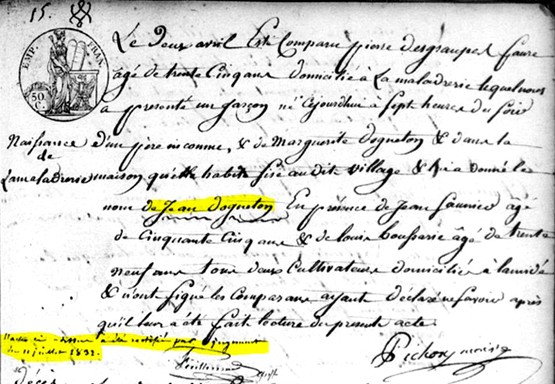 15.
EMP. FRAN.
50 C.
Le Deux avril Est Comparu pierre desgraupes faure
âgé de trente Cinq ans domicilié à La maladrerie lequel nous
a presenté un garçon né cejourdhui à Sept heures du soir
Naissance d'un père inconnu, & de Marguerite dogneton & dans la
de
Lamaladrerie maison qu'elle habite sise audit village & lui a donné le
nom de Jean dogneton En présence de Jean faurier âgé
de Cinquante Cinq ans & de louis bouffarie âgé de trente
neuf ans tous deux Cultivateurs domicilié à
& n'ont signé les Comparans ayant déclaré ne savoir après
qu'il leur a été fait lecture du présent acte.
Pichon
L'acte ci-dessus a été rectifié par jugement
du 11 juillet 1832.
décès